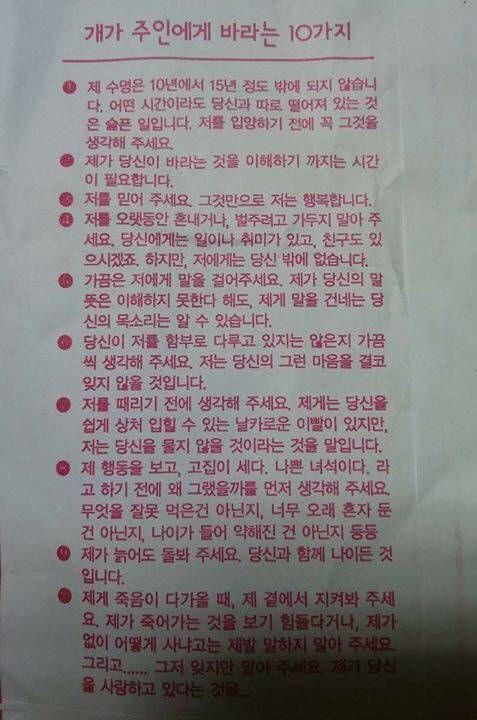 개가 주인에게 바라는 10가지
1 제 수명은 10년에서 15년 정도 밖에 되지 않습니
다. 어떤 시간이라도 당신과 따로 떨어져 있는 것
은 슬픈 일입니다. 저를 입양하기 전에 꼭 그것을
생각해 주세요.
2 제가 당신이 바라는 것을 이해하기 까지는 시간
이 필요합니다.
3 저를 믿어 주세요. 그것만으로 저는 행복합니다.
4 저를 오랫동안 혼내거나, 벌주려고 가두지 말아 주
세요. 당신에게는 일이나 취미가 있고, 친구도 있
으시겠죠. 하지만, 저에게는 당신 밖에 없습니다.
가끔은 저에게 말을 걸어주세요. 제가 당신의 말
뜻은 이해하지 못한다 해도, 제게 말을 건네는 당
신의 목소리는 알 수 있습니다.
당신이 저를 함부로 다루고 있지는 않은지 가끔
씩 생각해 주세요. 저는 당신의 그런 마음을 결코
잊지 않을 것입니다.
저를 때리기 전에 생각해 주세요. 제게는 당신을
쉽게 상처 입힐 수 있는 날카로운 이빨이 있지만,
저는 당신을 물지 않을 것이라는 것을 말입니다.
제 행동을 보고, 고집이 세다. 나쁜 녀석이다. 라
고 하기 전에 왜 그랬을까를 먼저 생각해 주세요.
무엇을 잘못 먹은건 아닌지, 너무 오래 혼자 둔
건 아닌지, 나이가 들어 약해진 건 아닌지 등등
제가 늙어도 돌봐 주세요. 당신과 함께 나이든 것
입니다.
제게 죽음이 다가올 때, 제 곁에서 지켜봐 주세
요. 제가 죽어가는 것을 보기 힘들다거나, 제가
없이 어떻게 사냐고는 제발 말하지 말아 주세요.
그리고...... 그저 잊지만 말아 주세요. 제가 당신
을 사랑하고 있다는 것을...